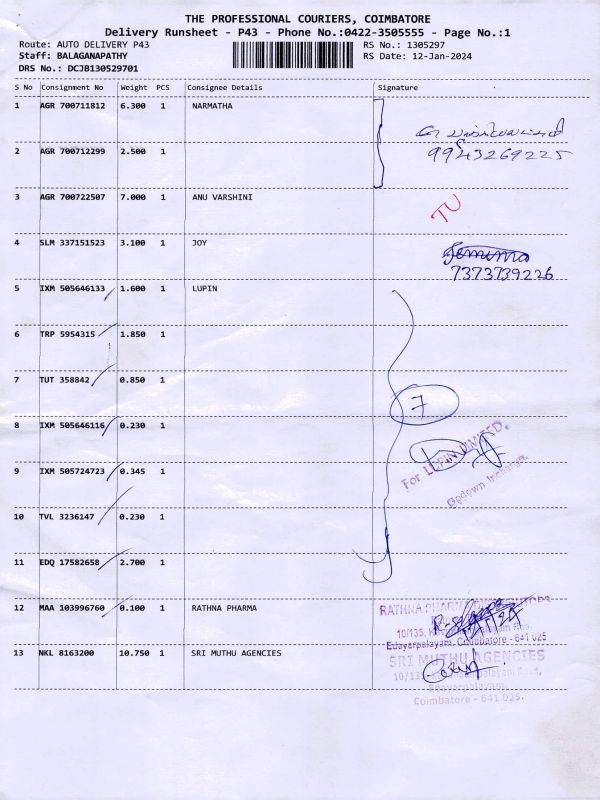 THE PROFESSIONAL COURIERS, COIMBATORE
Delivery Runsheet - P43 - Phone No.:0422-3505555 - Page No.:1
Route: AUTO DELIVERY P43 RS No.: 1305297
Staff: BALAGANAPATHY RS Date: 12-Jan-2024
DRS No.: DCJB130529701
S No Consignment No Weight PCS Consignee Details Signature
1 AGR 700711812 6.300 1 NARMATHA
2 AGR 700712299 2.500 1
9943269225
3 AGR 700722507 7.000 1 ANU VARSHINI
TU
4 SLM 337151523 3.100 1 JOY
Jemima
7373739226
5 IXM 505646133 1.600 1 LUPIN
6 TRP 5954315 1.850 1
7 TUT 358842 0.850 1
7
8 IXM 505646116 0.230 1
For LUPIN LIMITED.
9 IXM 505724723 0.345 1
Godown Incharge.
10 TVL 3236147 0.230 1
11 EDQ 17582658 2.700 1
12 MAA 103996760 0.100 1 RATHNA PHARMA
RATHNA PHARMA DISTRIBUTORS
10/135,
Edayarpalayam, Coimbatore - 641 025
13 NKL 8163200 10.750 1 SRI MUTHU AGENCIES
SRI MUTHU AGENCIES
Road,
Edayarpalayam,
Coimbatore - 641 025.